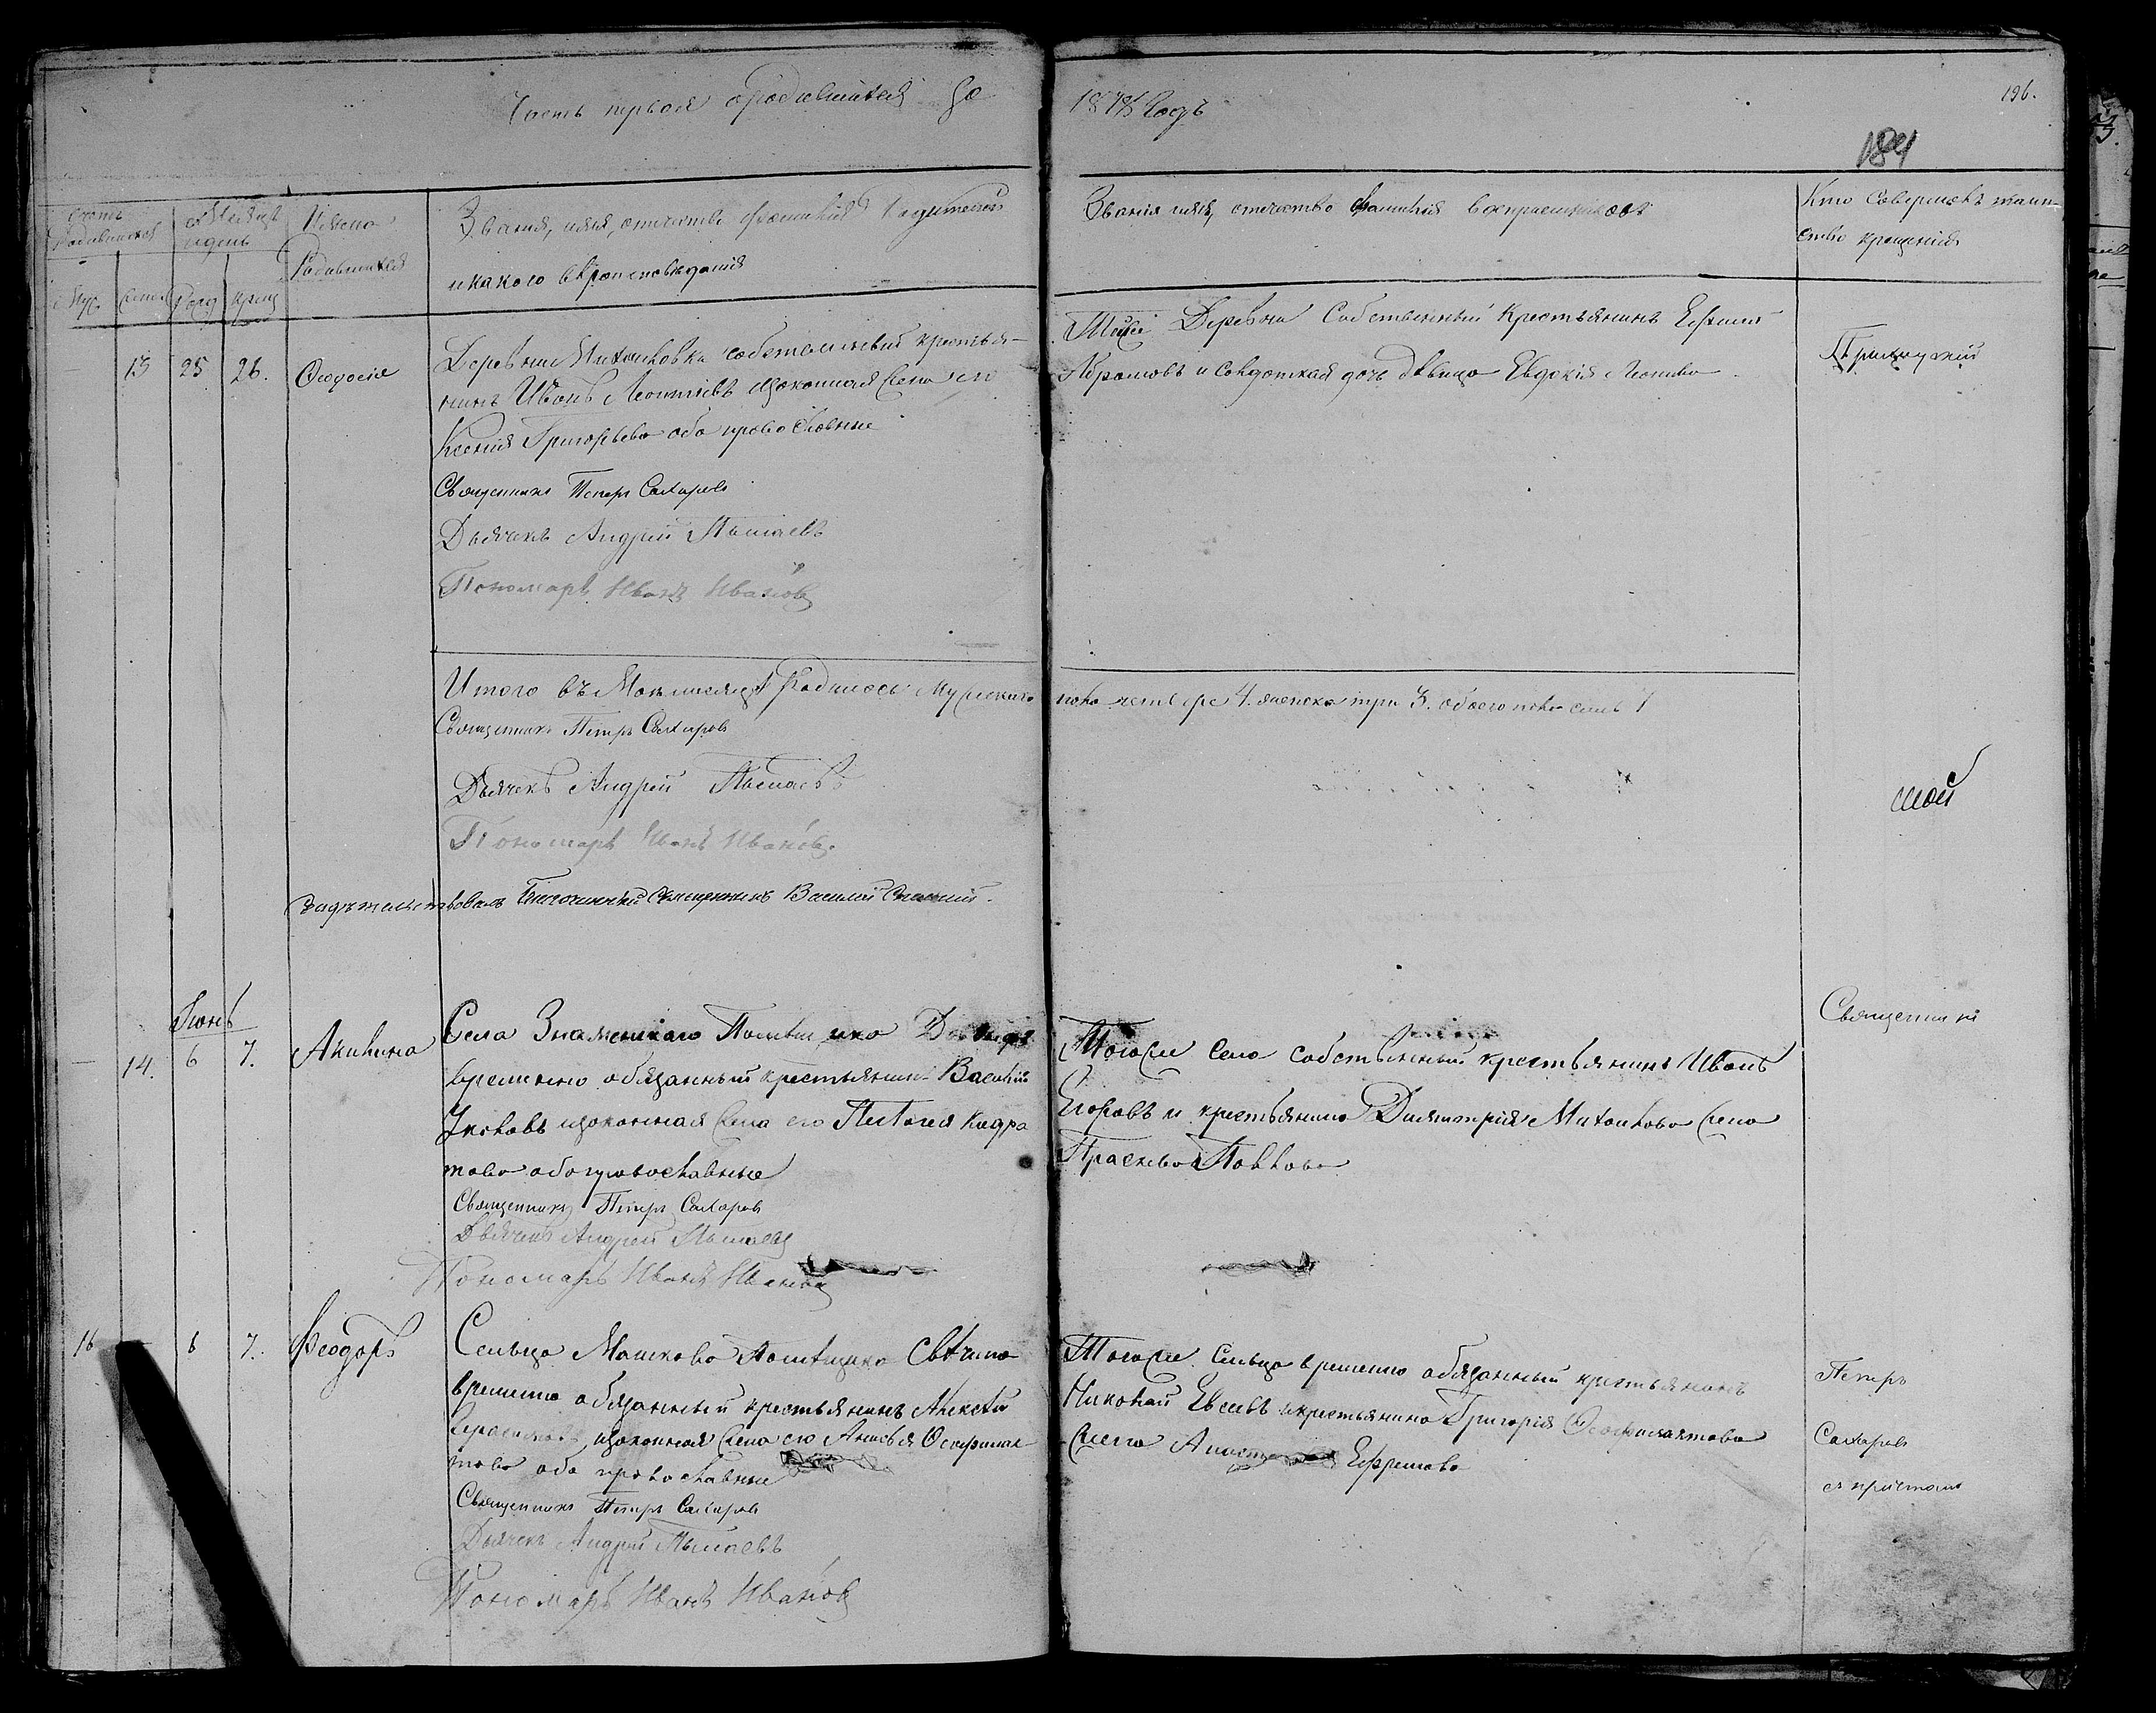 Часть первая о родившихся за
1878 Годъ
196.
184
Счетъ родившихся
Месяцъ и день
Имена Родившихся
Звания, имя, отчество фамилия Родителей
и какого вероисповедания
Муж. Женс. Рожд Крещ
Звания имя, отчество фамилия восприемниковъ
Кто Совершалъ таин-
ство крещения
13 25 26. Феодосiя
Деревни Михайловки собственный крестья-
нинъ Иванъ Леонтiевъ изаконная жена его
Ксения Григорьева оба православные
Священникъ Петръ Сахаровъ
Дьячекъ Андрей
Пономарь Иванъ Ивановъ
Тойже Деревни Собственный Крестьянинъ Ефимъ
Абрамовъ и Солдатская дочь девица Евдокiя
Приходскiй
Итого въ Маи месяце родилось Мужскаго
пола четыре 4. женска три 3. обоего пола семь 7
Священникъ Петръ Сахаровъ
Дьячекъ Андрей
Пономарь Иванъ Ивановъ.
свидетельствовалъ Благочинный Священникъ Василий
Iюнь
14. 6 7. Акилина
Села Знаменскаго Помещика
временно обязанный крестьянинъ Василiй
Яковлевъ изаконная жена его Пелагея Кодра
това оба православные
Священникъ Петръ Сахаровъ
Дьячекъ Андрей
Пономарь Иванъ Ивановъ
Тогоже села собственный крестьянинъ Иванъ
Егоровъ и крестьянина Димитрия Михайлова жена
Прасковья Павлова
Священникъ
16 6 7. Феодоръ
Сельца Машкова Помещика Свечина
временно обязанный крестьянинъ Алексей
изаконная жена его
оба православные
Священникъ Петръ Сахаровъ
Дьячекъ Андрей
Пономарь Иванъ Ивановъ
Тогоже сельца временно обязанный крестьянинъ
Николай Евсеевъ и крестьянина Григорiя
жена Ефремова
Петръ
Сахаровъ
съ причтомъ